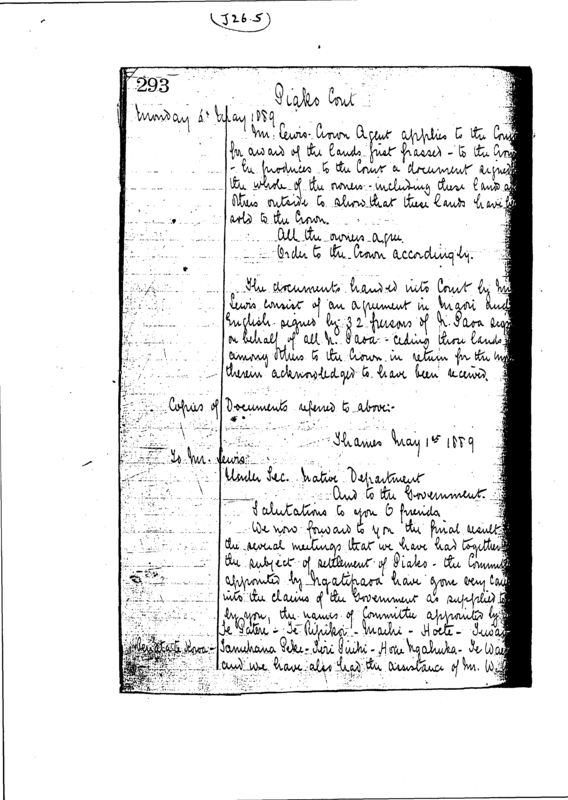 (J26.5)
293
Piako Cont
Monday 6th May 1889
Mr. Lewis Crown Agent applies to the Cou
for award of the lands first passed - to the Crow
- he produces to the Court a document signed
the whole of the owners - including these lands a
others outside to show that these lands have b
sold to the Crown.
All the owners agree.
Order to the Crown accordingly.
The documents handed into Court by Mr
Lewis consist of an agreement in Maori and
English signed by 32 persons of N. Paoa
on behalf of all N. Paoa - ceding those lands
among others to the Crown in return for the
therein acknowledged to have been received.
Copies of Documents referred to above:-
Thames May 1st 1889
To Mr. Lewis
Under Sec. Native Department
And to the Government.
Salutations to you O friends
We now forward to you the final result
the several meetings that we have had together
the subject of settlement of Piako - the Commit
appointed by Ngatipaoa have gone very care
into the claims of the Government as supplied to
by you, the names of Committee appointed by
Te Patene - Te Ripikoi - Maihi - Hoete -
Tamihana Peke - Kiri - Hone Ngahuka - Te Wae
and we have also had the assistance of Mr. W